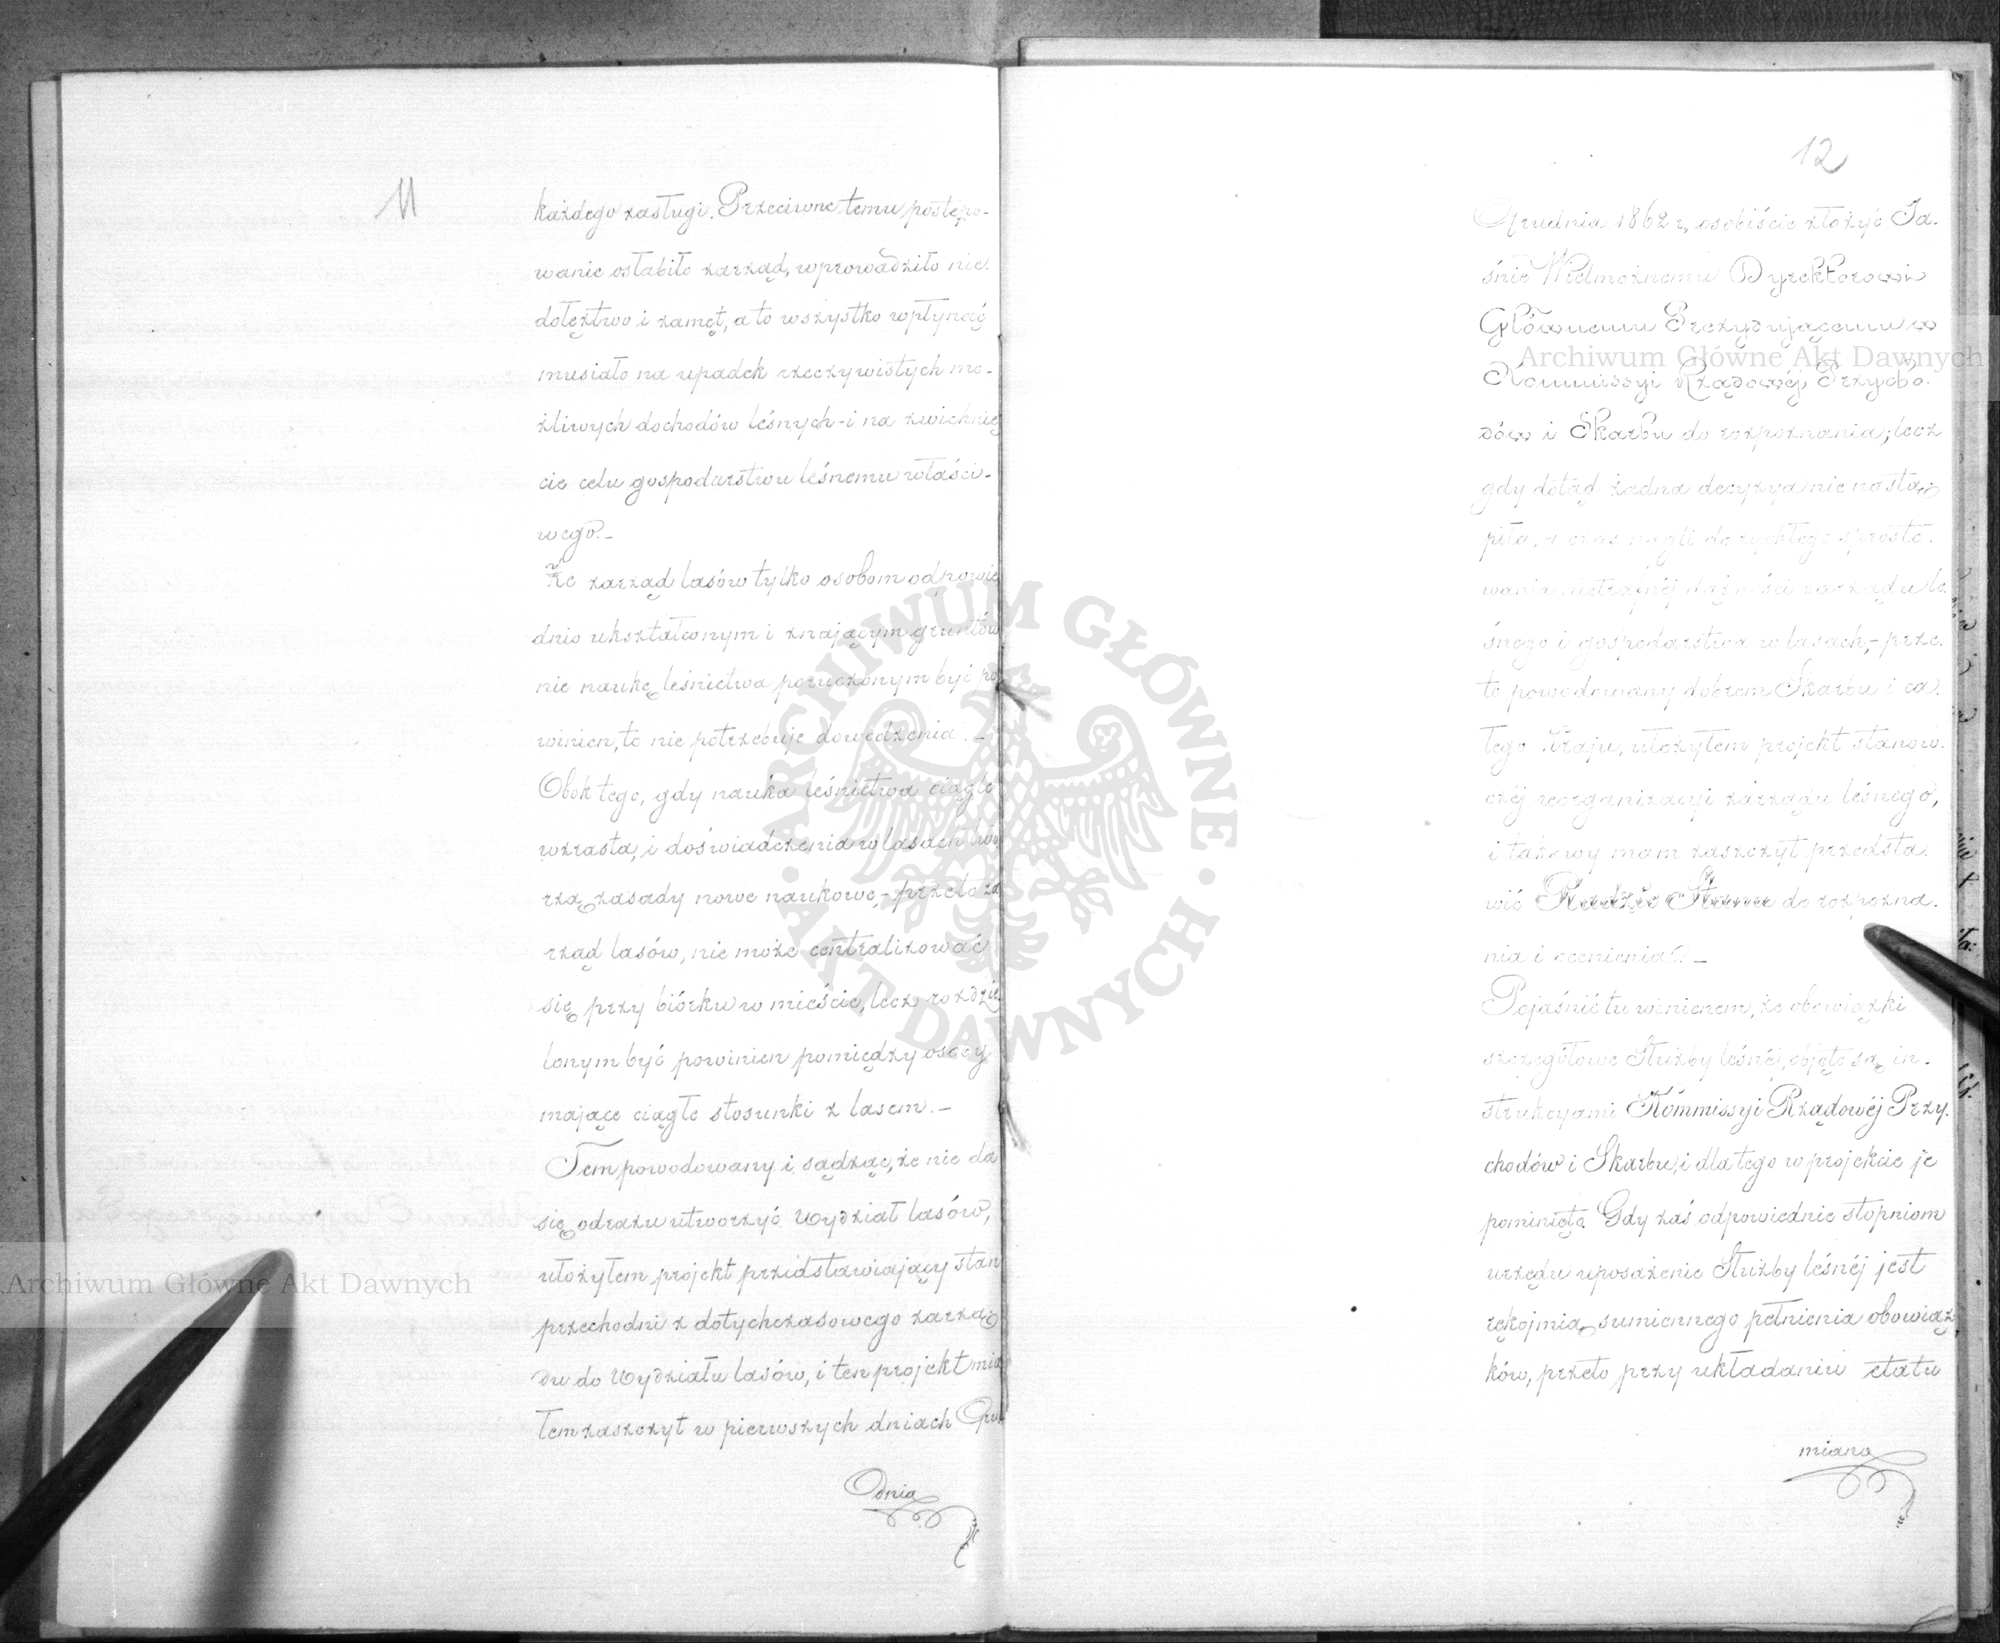 11
każdego zasługi. Przeciwne temu postępo-
wanie osłabiło zarząd, wprowadziło nie-
dołęztwo i zamęt, a to wszystko wpłynąć
musiało na upadek rzeczywistych mo-
żliwych dochodów leśnych - i na zwichnię
cie celu gospodarstwu leśnemu właści-
wego. -
Że zarząd lasów tylko osobom odpowie
dnio ukształconym i znającym gruntów
nie naukę leśnictwa poruczonym być po
winien, to nie potrzebuje dowodzenia. -
Obok tego, gdy nauka leśnictwa ciągle
wzrasta, i doświadczenia w lasach two
rzą zasady nowe naukowe, - przeto za
rząd lasów, nie może centralizować
się przy biórku w mieście, lecz rozdzie
lonym być powinien pomiędzy osoby
mające ciągłe stosunki z lasem. -
Tem powodowany i sądząc, że nie da
się odrazu utworzyć Wydział lasów,
ułożyłem projekt przedstawiający stan
przechodni z dotychczasowego zarzą
du do Wydziału lasów, i ten projekt mia
łem zaszczyt w pierwszych dniach Gru
dnia
12
Grudnia 1862 r, osobiście złożyć Ja-
śnie Wielmożnemu Dyrektorowi
Głównemu Prezydującemu w
Kommissyi Rządowéj Przycho-
dów i Skarbu do rozpoznania; lecz
gdy dotąd żadna decyzya nie nastą
piła, a czas nagli do rychłego sprosto-
wania nietrafnéj dążności zarządu le-
śnego i gospodarstwa w lasach, - prze-
to powodowany dobrem Skarbu i ca-
łego Kraju, ułożyłem projekt stanow-
czéj reorganizacyi zarządu leśnego,
i takowy mam zaszczyt przedsta-
wić Radzie Stanu do rozpozna-
nia i ocenienia. -
Pojaśnić tu winienem, że obowiązki
szczegółowe Służby leśnéj, objęte są in-
strukcyami Kommissyi Rządowéj Przy-
chodów i Skarbu, i dla tego w projekcie je
pominięto. Gdy zaś odpowiednie stopniom
urzędu uposażenie Służby leśnéj jest
rękojmią sumiennego pełnienia obowiąz-
ków, przeto przy układaniu etatu
miano
Archiwum Główne Akt Dawnych
Archiwum Główne Akt Dawnych
ARCHIWUM GŁÓWNE · AKT DAWNYCH ·